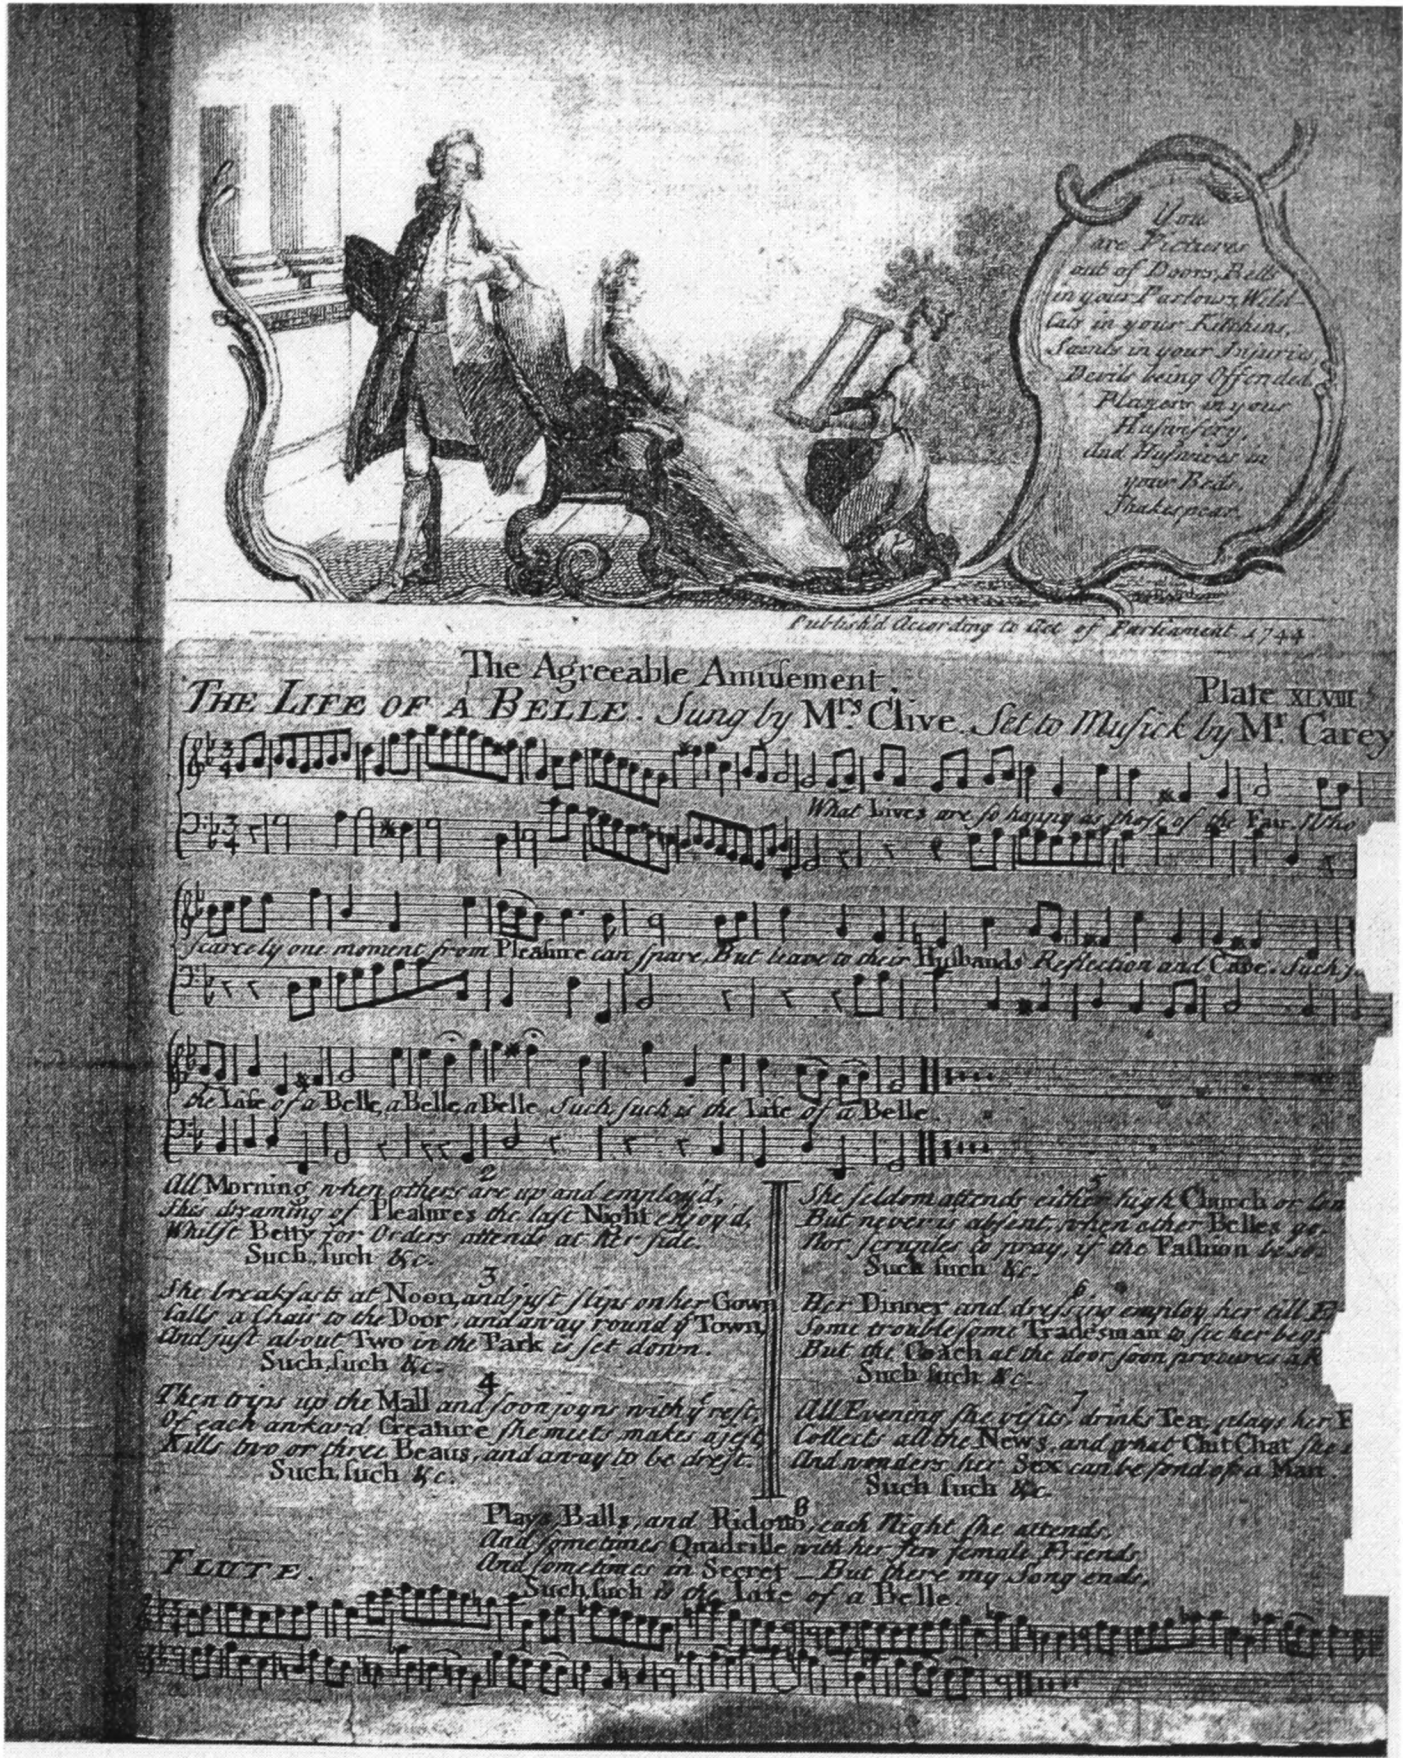 You
are Pictures
out of Doors, Bells
in your Parlours, Wild-
Cats in your Kitchins,
Saints in your Injuries,
Devils being Offended,
Players in your
Huswifery,
And Huswives in
your Beds.
Shakespear.
Publish'd According to Act of Parliament 1744
The Agreeable Amusement.
Plate XLVIII
THE LIFE OF A BELLE. Sung by Mrs. Clive. Set to Musick by Mr. Carey
What Lives are so happy as those of the Fair. Who
scarcely one moment from Pleasure can spare, But leave to their Husbands Reflection and Care. Such
the Life of a Belle, a Belle, a Belle, Such, such is the Life of a Belle.
2
All Morning when others are up and employ'd,
Shes dreaming of Pleasures the last Night enjoy'd,
Whilst Betty for Orders attends at her side.
Such, such &c.
3
She breakfasts at Noon, and just slips on her Gown
Calls a Chair to the Door, and away round ye Town,
And just about Two in the Park is set down.
Such, such &c.
4
Then trips up the Mall and soon joyns with ye rest,
Of each awkard Creature she meets makes a jest,
Kills two or three Beaus, and away to be drest.
Such, such &c.
5
She seldom attends either high Church or
But never is absent, when other Belles go.
Nor scruples to pray, if the Fashion be so.
Such such &c.
6
Her Dinner and dressing employ her till
Some troublesome Tradesman to see her
But the Coach at the door soon procures a
Such such &c.
7
All Evening she visits, drinks Tea, plays her
Collects all the News, and what Chit Chat she
And wonders her Sex can be fond of a Man.
Such such &c.
8
Plays, Balls, and Ridotto's, each Night she attends,
And sometimes Quadrille with her few female Friends,
And sometimes in Secret — But there my Song ends,
Such such is the Life of a Belle.
FLUTE.